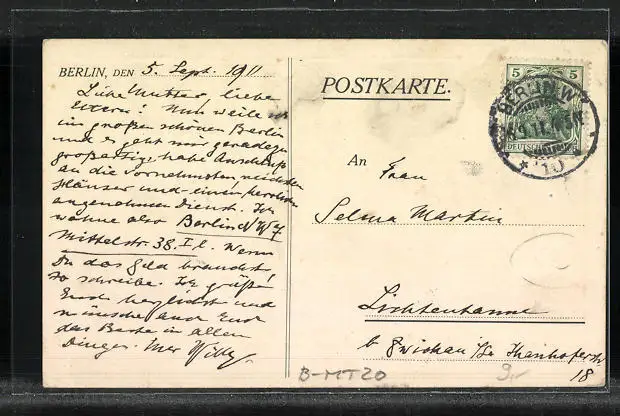 BERLIN, DEN 5. Sept. 1911
Liebe Mutter, liebe
Eltern! Nun weile ich
im großen schönen Berlin
und es geht mir geradezu
großartig, habe Anschluß
an die Vornehmsten
Häuser und einen
angenehmen Dienst. Ich
wohne also Berlin NW 7
Mittelstr. 38. I l. Wenn
Du das Geld brauchst,
so schreibe. Ich grüße
Euch herzlichst und
wünsche auch Euch
das Beste in allen
Dingen. Euer Willy.
POSTKARTE.
5 5
BERLIN W
DEUTSCHES
* 10
An Frau
Selma Martin
Lichtentanne
b Zwickau i/Sa
18
B-MT20
9,-